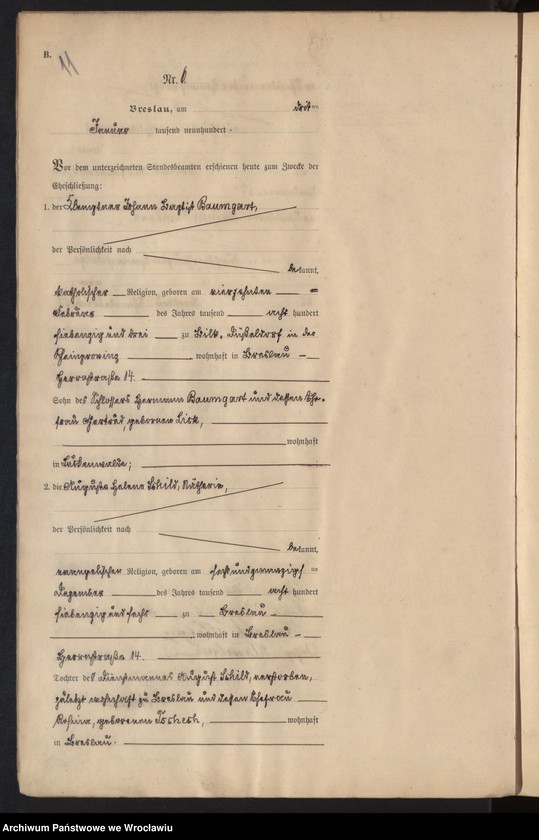 B.
11
Nr. 6
Breslau, am drit ten
Januar tausend neunhundert -
Vor dem unterzeichneten Standesbeamten erschienen heute zum Zwecke der
Eheschließung:
1. der Klempner Johann Baptist Baumgart,
der Persönlichkeit nach
bekannt,
katholischer Religion, geboren am vierzehnten
Februar des Jahres tausend acht hundert
siebenzig und drei zu Bilk, Düsseldorf in der
Rheinprovinz, wohnhaft in Breslau
Herrnstraße 14.
Sohn des Schlossers Hermann Baumgart und dessen Ehe-
frau Gertrud, geborenen Lisk,
wohnhaft
in Luckenwalde;
2. die Auguste Helene Schild, Näherin,
der Persönlichkeit nach
bekannt,
evangelischer Religion, geboren am sechsundzwanzigs ten
Dezember des Jahres tausend acht hundert
siebenzig und sechs zu Breslau
, wohnhaft in Breslau
Herrnstraße 14.
Tochter des Dienstmannes August Schild, verstorben,
zuletzt wohnhaft zu Breslau und dessen Ehefrau
Rosina, geborenen wohnhaft
in Breslau.
Archiwum Państwowe we Wrocławiu